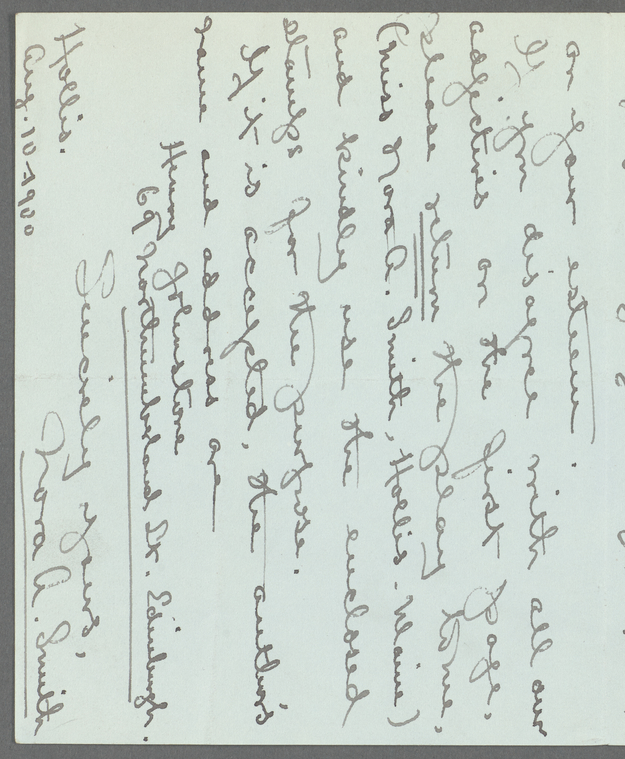 on your esteem.
If you disagree with all our
adjectives on the first page,
please return the play to me,
(Miss Nora A. Smith, Hollis - Maine)
and kindly use the enclosed
stamps for the purpose.
If it is accepted, the author's
name and address are
Henry Johnstone
69 Northumberland St. Edinburgh.
Sincerely yours,
Nora A. Smith
Hollis.
Aug. 10 - 1900